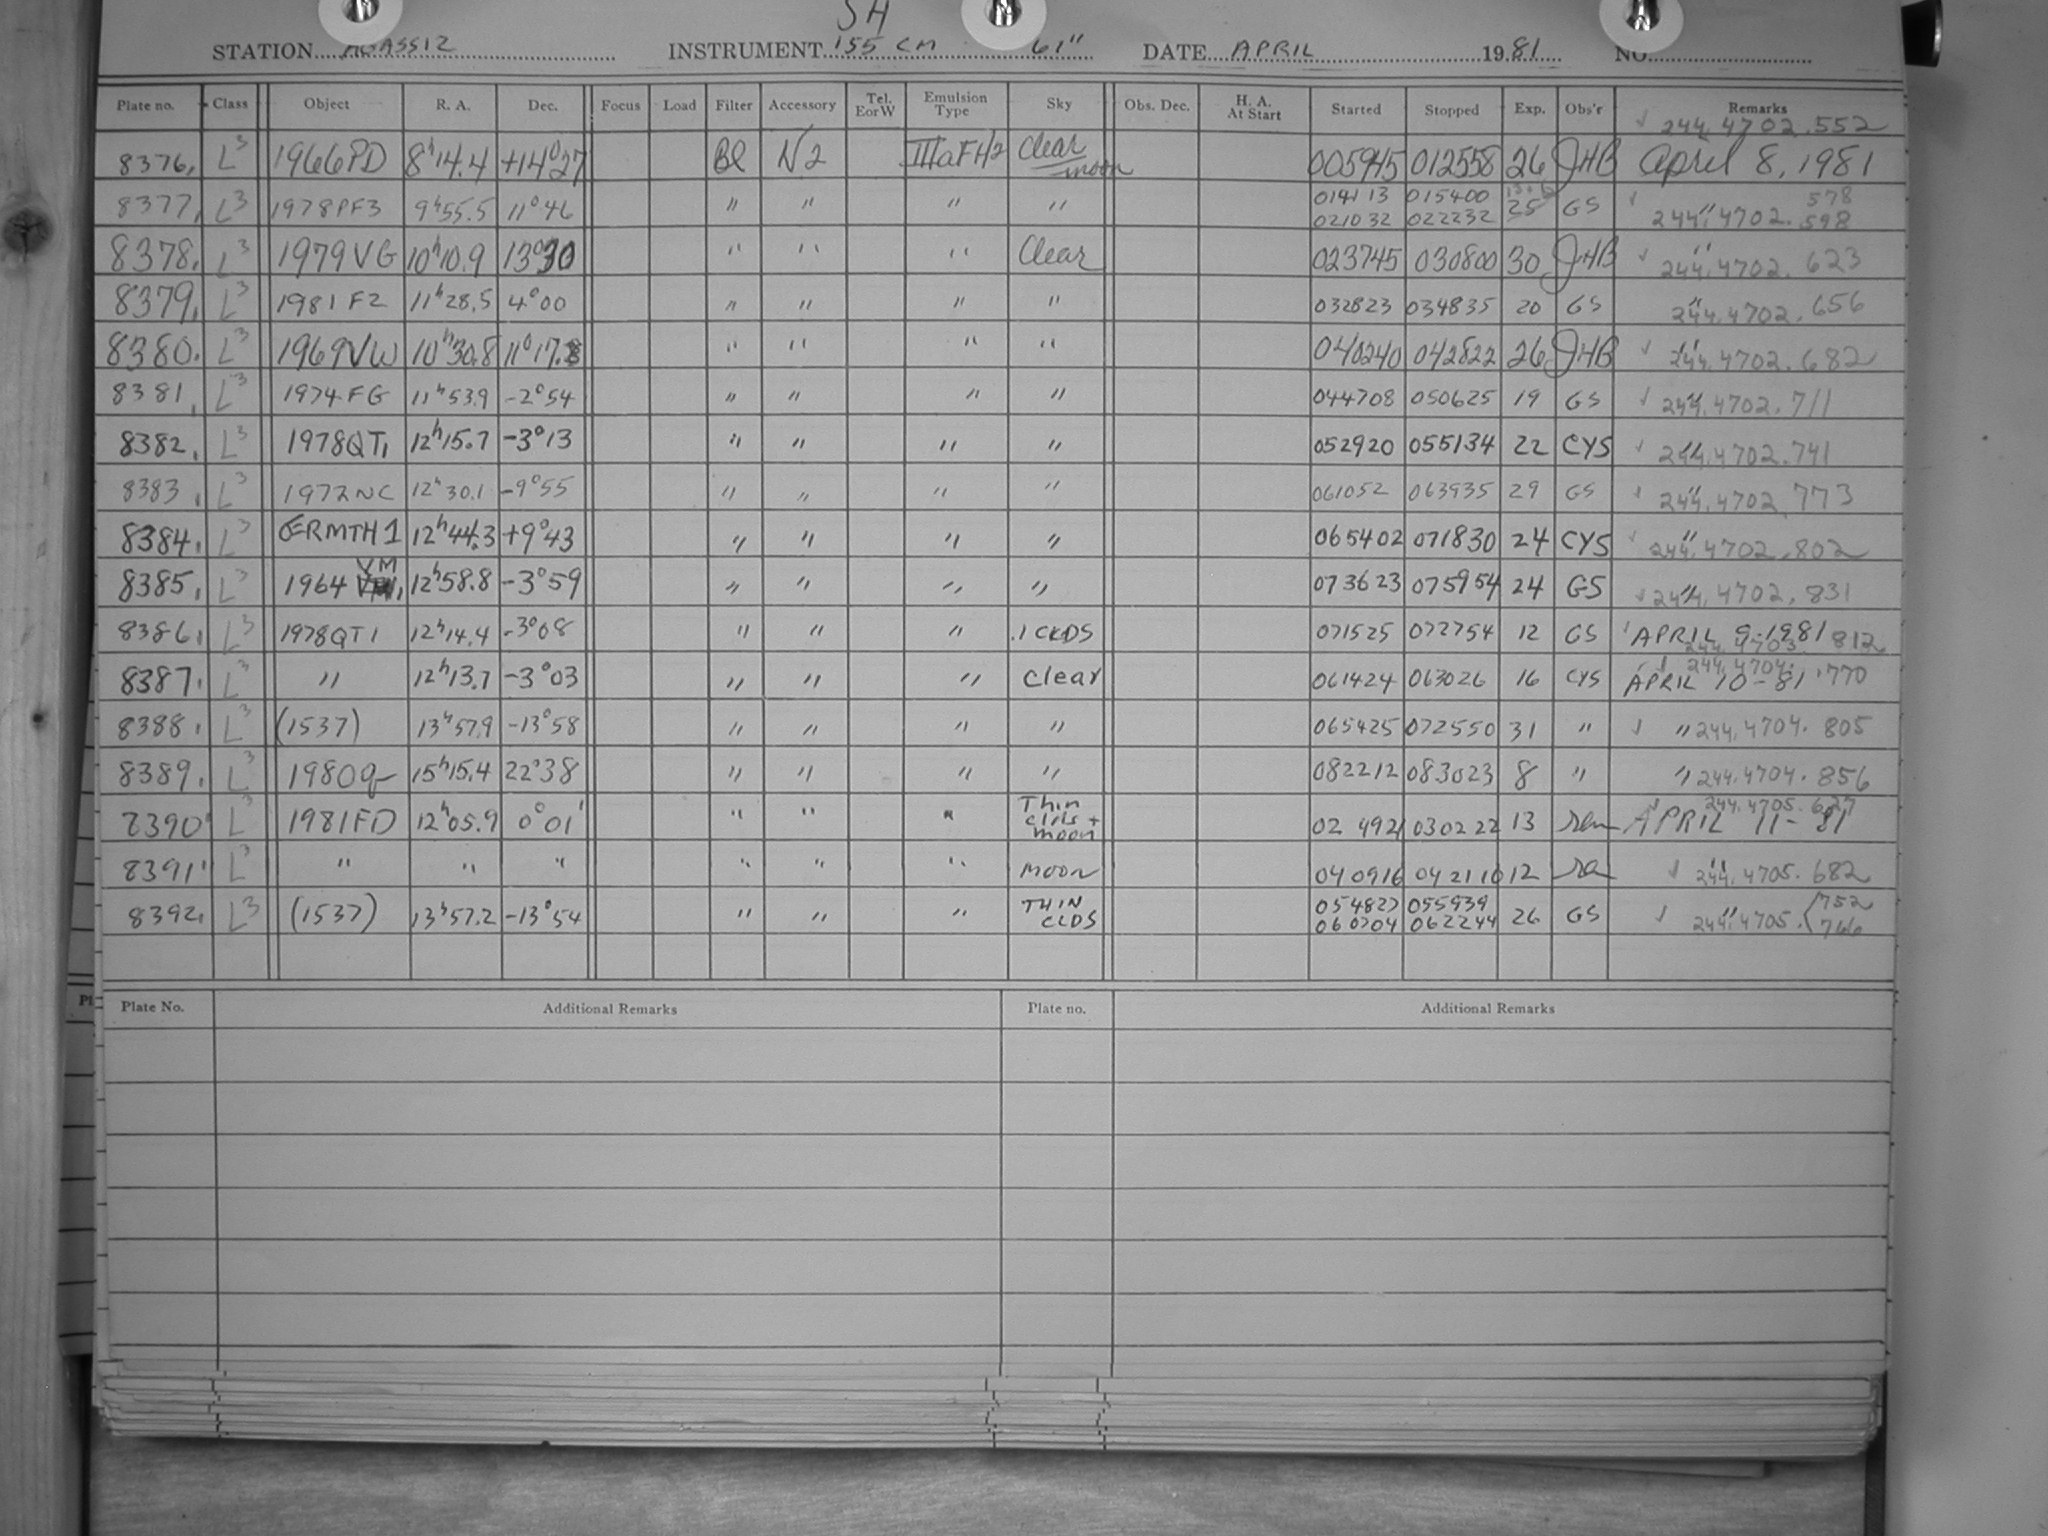 SH
STATION AGASSIZ INSTRUMENT 155 CM 61" DATE APRIL 1981 NO.
Plate no. Class Object R. A. Dec. Focus Load Filter Accessory Tel. E or W Emulsion Type Sky Obs. Dec. H. A. At Start Started Stopped Exp. Obs'r Remarks
√ 244,4702.552
8376, L3 1966PD 8h14.4 +14°27 Bl N2 IIIaFH2 Clear moon 005945 012558 26 JHB April 8, 1981
8377, L3 1978PF3 9h55.5 11°46 " " " " 014113 015400 25 GS √ " 578
021032 022232 244,4702.598
8378, L3 1979VG 10h10.9 13°30 " " " Clear 023745 030800 30 JHB √ " 244,4702.623
8379, L3 1981FZ 11h28.5 4°00 " " " " 032823 034835 20 GS " 244,4702.656
8380. L3 1969VW 10h30.8 11°17.8 " " " " 040240 042822 26 JHB √ " 244,4702.682
8381, L3 1974FG 11h53.9 -2°54 " " " " 044708 050625 19 GS √ " 244,4702.711
8382, L3 1978QT1 12h15.7 -3°13 " " " " 052920 055134 22 CYS √ " 244,4702.741
8383, L3 1972NC 12h30.1 -9°55 " " " " 061052 063935 29 GS √ " 244,4702.773
8384, L3 12h44.3 +9°43 " " " " 065402 071830 24 CYS √ " 244,4702.802
8385, L3 1964 VM 12h58.8 -3°59 " " " " 073623 075954 24 GS √ " 244,4702.831
8386, L3 1978QT1 12h14.4 -3°08 " " " .1 CLDS 071525 072754 12 GS √ APRIL 9-1981 244,4703.812
8387. L3 " 12h13.7 -3°03 " " " clear 061424 063026 16 CYS √ APRIL 10-81 244,4704.770
8388. L3 (1537) 13h57.9 -13°58 " " " " 065425 072550 31 " √ " 244,4704.805
8389, L3 1980 15h15.4 22°38 " " " " 082212 083023 8 " " 244,4704.856
8390 L3 1981FD 12h05.9 0°01' " " " Thin clds + moon 02 4921 030222 13 √ APRIL 11-81 244,4705.627
8391 L3 " " " " " " MOON 040916 042110 12 √ " 244,4705.682
8392, L3 (1537) 13h57.2 -13°54 " " " THIN CLDS 054827 055939 26 GS √ " 244,4705.752
060704 062244 766
Plate No. Additional Remarks Plate no. Additional Remarks
Pl